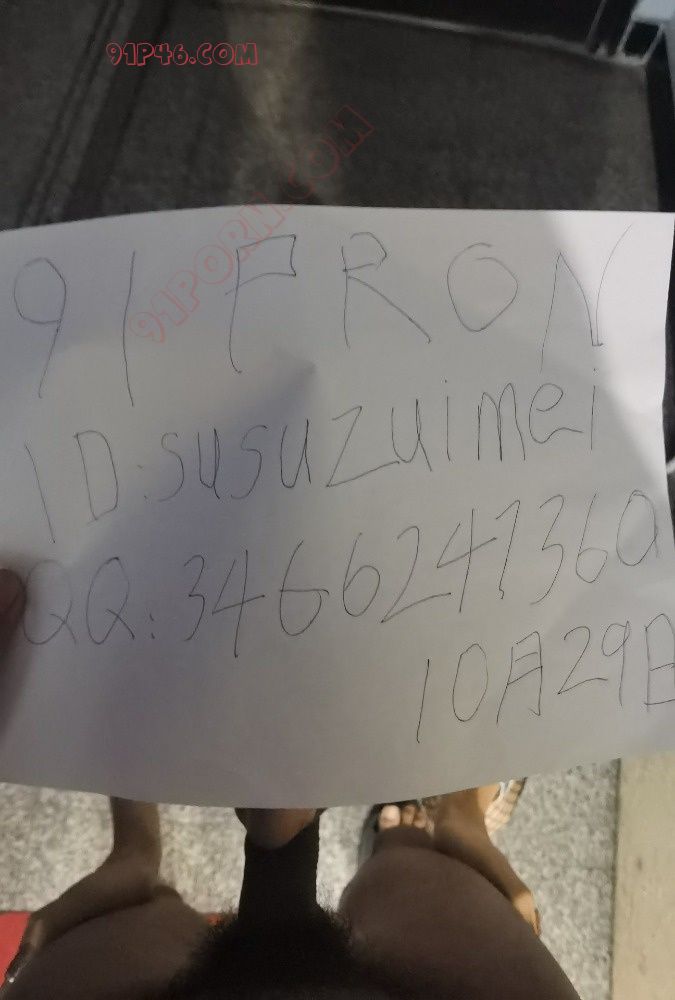 91P46.COM
91PORN.COM
91 PRON
ID:susuzuimei
QQ:3466247360
10月29日